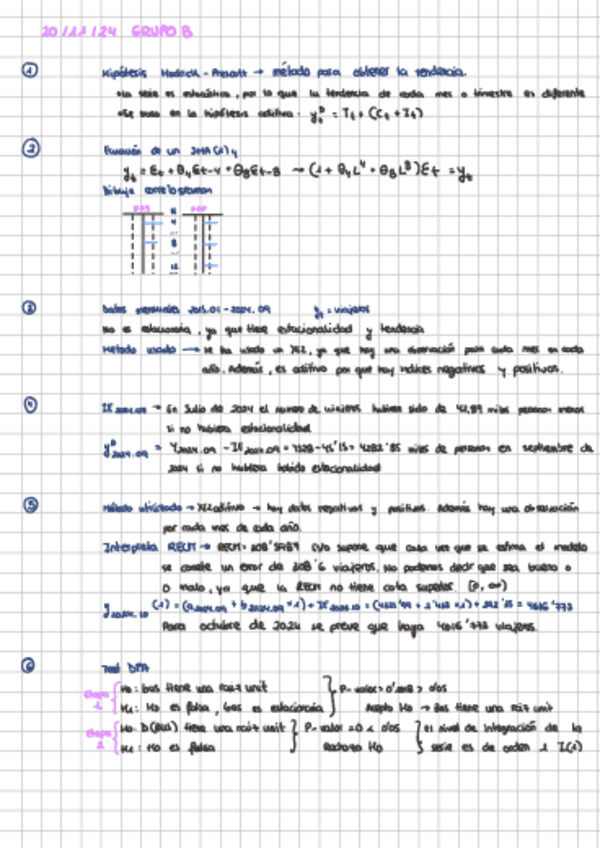 20/11/24 GRUPO B
① Hipótesis Hodrick-Prescott → método para obtener la tendencia.
•la serie es estocástica, por lo que la tendencia de cada mes o trimestre es diferente
•se basa en la hipótesis aditiva. yₜᴰ = Tₜ + (Cₜ + Iₜ)
② Ecuación de un SMA(2)₄
yₜ = Eₜ + θ₄Eₜ₋₄ + θ₈Eₜ₋₈ → (1 + θ₄L⁴ + θ₈L⁸)Eₜ = yₜ
Dibuja correlograma
FAS K FAP
4
8
12
③ Datos mensuales 2015.01 - 2024.09 yₜ = viajeros
No es estacionaria, ya que tiene estacionalidad y tendencia
Método usado → se ha usado un X12, ya que hay una observación para cada mes en cada
año. Además, es aditivo por que hay índices negativos y positivos.
④ → En Julio de 2024 el número de viajeros hubiera sido de miles personas menos
si no hubiera estacionalidad
yᴰ2024.09 = Y2024.09 - IE2024.09 = = 4282'85 miles de personas en septiembre de
2024 si no hubiera habido estacionalidad
⑤ Método utilizado → aditivo → hay datos negativos y positivos. Además hay una observación
por cada mes de cada año.
Interpreta RECM → RECM= Nos supone que cada vez que se estima el modelo
se comete un error de 208'6 viajeros. No podemos decir que sea bueno o
o malo, ya que la RECM no tiene cota superior. [0, ∞)
y2024.10 (1) = (a2024.09 + b2024.09 *1) + IE2024.10 =
Para octubre de 2024 se prevé que haya viajeros.
⑥ Test DFA
Etapa 1 H₀: bus tiene una raiz unit P-valor > 0'05
H₁: H₀ es falsa, bus es estacionaria Acepto H₀ → Bus tiene una raiz unit
Etapa 2 H₀: D(BUS) tiene una raiz unit P-valor = 0 < 0'05 El nivel de integración de la
H₁: H₀ es falsa Rechazo H₀ serie es de orden 1 I(1)